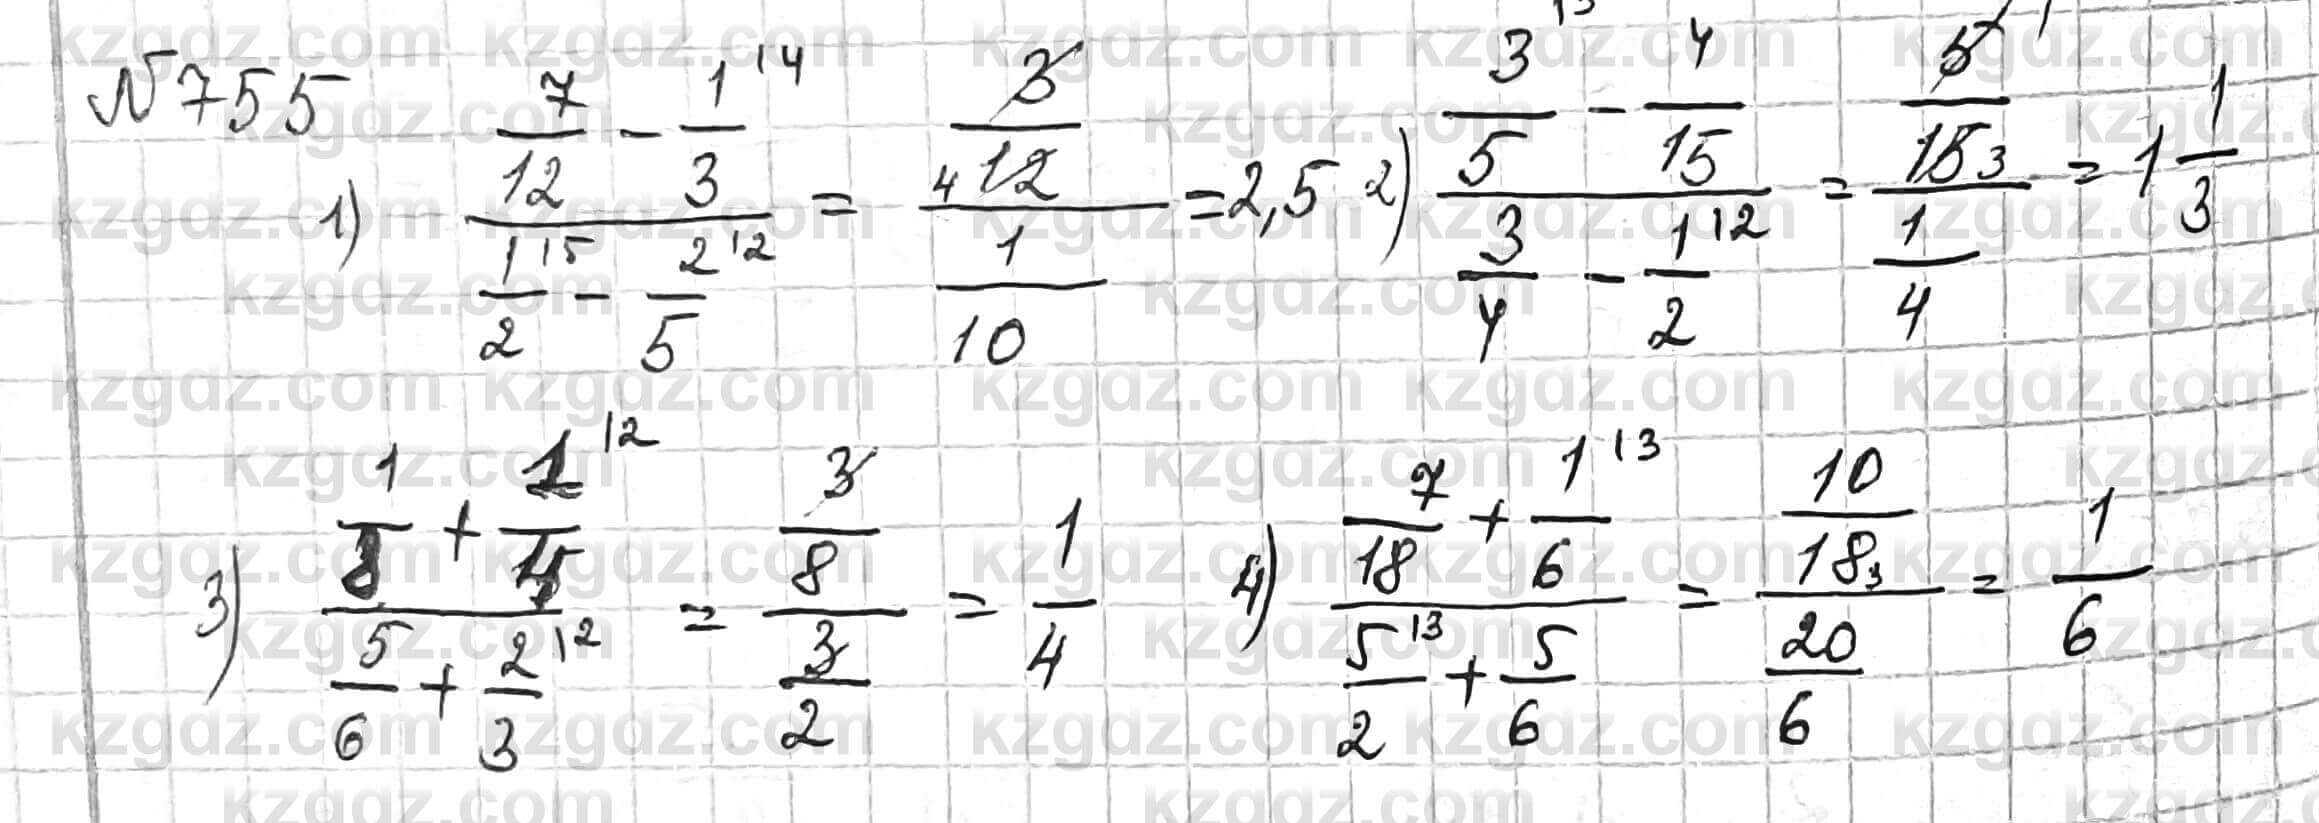 №755
1) (7/12 - 1/3 |4) / (1/2 |5 - 2/5 |2) = (3/12 4) / (1/10) = 2,5
2) (3/5 |3 - 4/15) / (3/4 - 1/2 |2) = (5/15 1 3) / (1/4) = 1 1/3
3) (1/8 + 1/4 |2) / (5/6 + 2/3 |2) = (3/8) / (3/2) = 1/4
4) (7/18 + 1/6 |3) / (5/2 |3 + 5/6) = (10/18 3) / (20/6) = 1/6
kzgdz.com